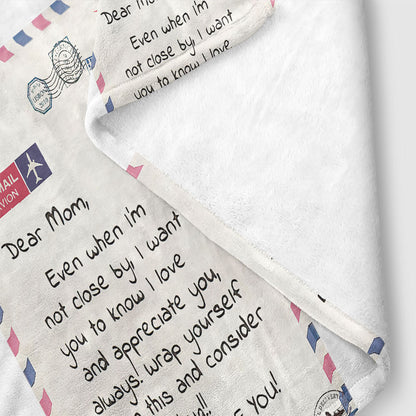 Dear Mom,
Even when I'm
not close by, I want
you to know I love
MAIL
AVION
Dear Mom,
Even when I'm
not close by, I want
you to know I love
and appreciate you,
always! Wrap yourself
this and consider
YOU!